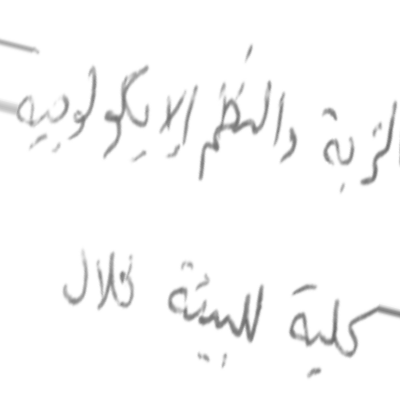 التربة والنظم الإيكولوجية
كلية للبيئة خلال